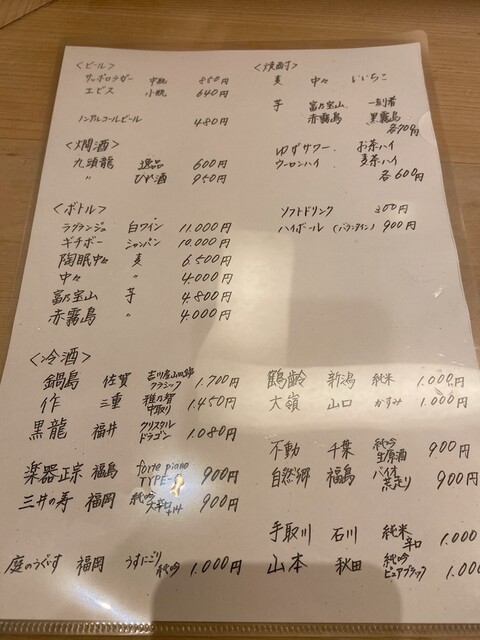 <ビール>
サッポロラガー 中瓶 850円
エビス 小瓶 640円
ノンアルコールビール 480円
<燗酒>
九頭龍 逸品 600円
〃 ひれ酒 950円
<ボトル>
ラグランジュ 白ワイン 11.000円
ギチボー シャンパン 10.000円
陶眠中々 麦 6.500円
中々 〃 4.000円
富乃宝山 芋 4.800円
赤霧島 〃 4.000円
<焼酎>
麦 中々 いいちこ
芋 富乃宝山 一刻者
赤霧島 黒霧島
各700円
ゆずサワー お茶ハイ
ウーロンハイ 麦茶ハイ
各600円
ソフトドリンク 300円
ハイボール (バランタイン) 900円
<冷酒>
鍋島 佐賀 吉川産山田錦
クラシック 1.700円
作 三重 雅乃智
中取り 1.450円
黒龍 福井 クリスタル
ドラゴン 1.080円
楽器正宗 福島 forte piano
TYPE- 900円
三井の寿 福岡 純吟
大辛口 900円
庭のうぐいす 福岡 うすにごり
純吟 1.000円
鶴齢 新潟 純米 1.000円
大嶺 山口 かすみ 1.000円
不動 千葉 純吟
生原酒 900円
自然郷 福島 バイオ
荒走り 900円
手取川 石川 純米
辛口 1.000
山本 秋田 純吟
ピュアブラック 1.000